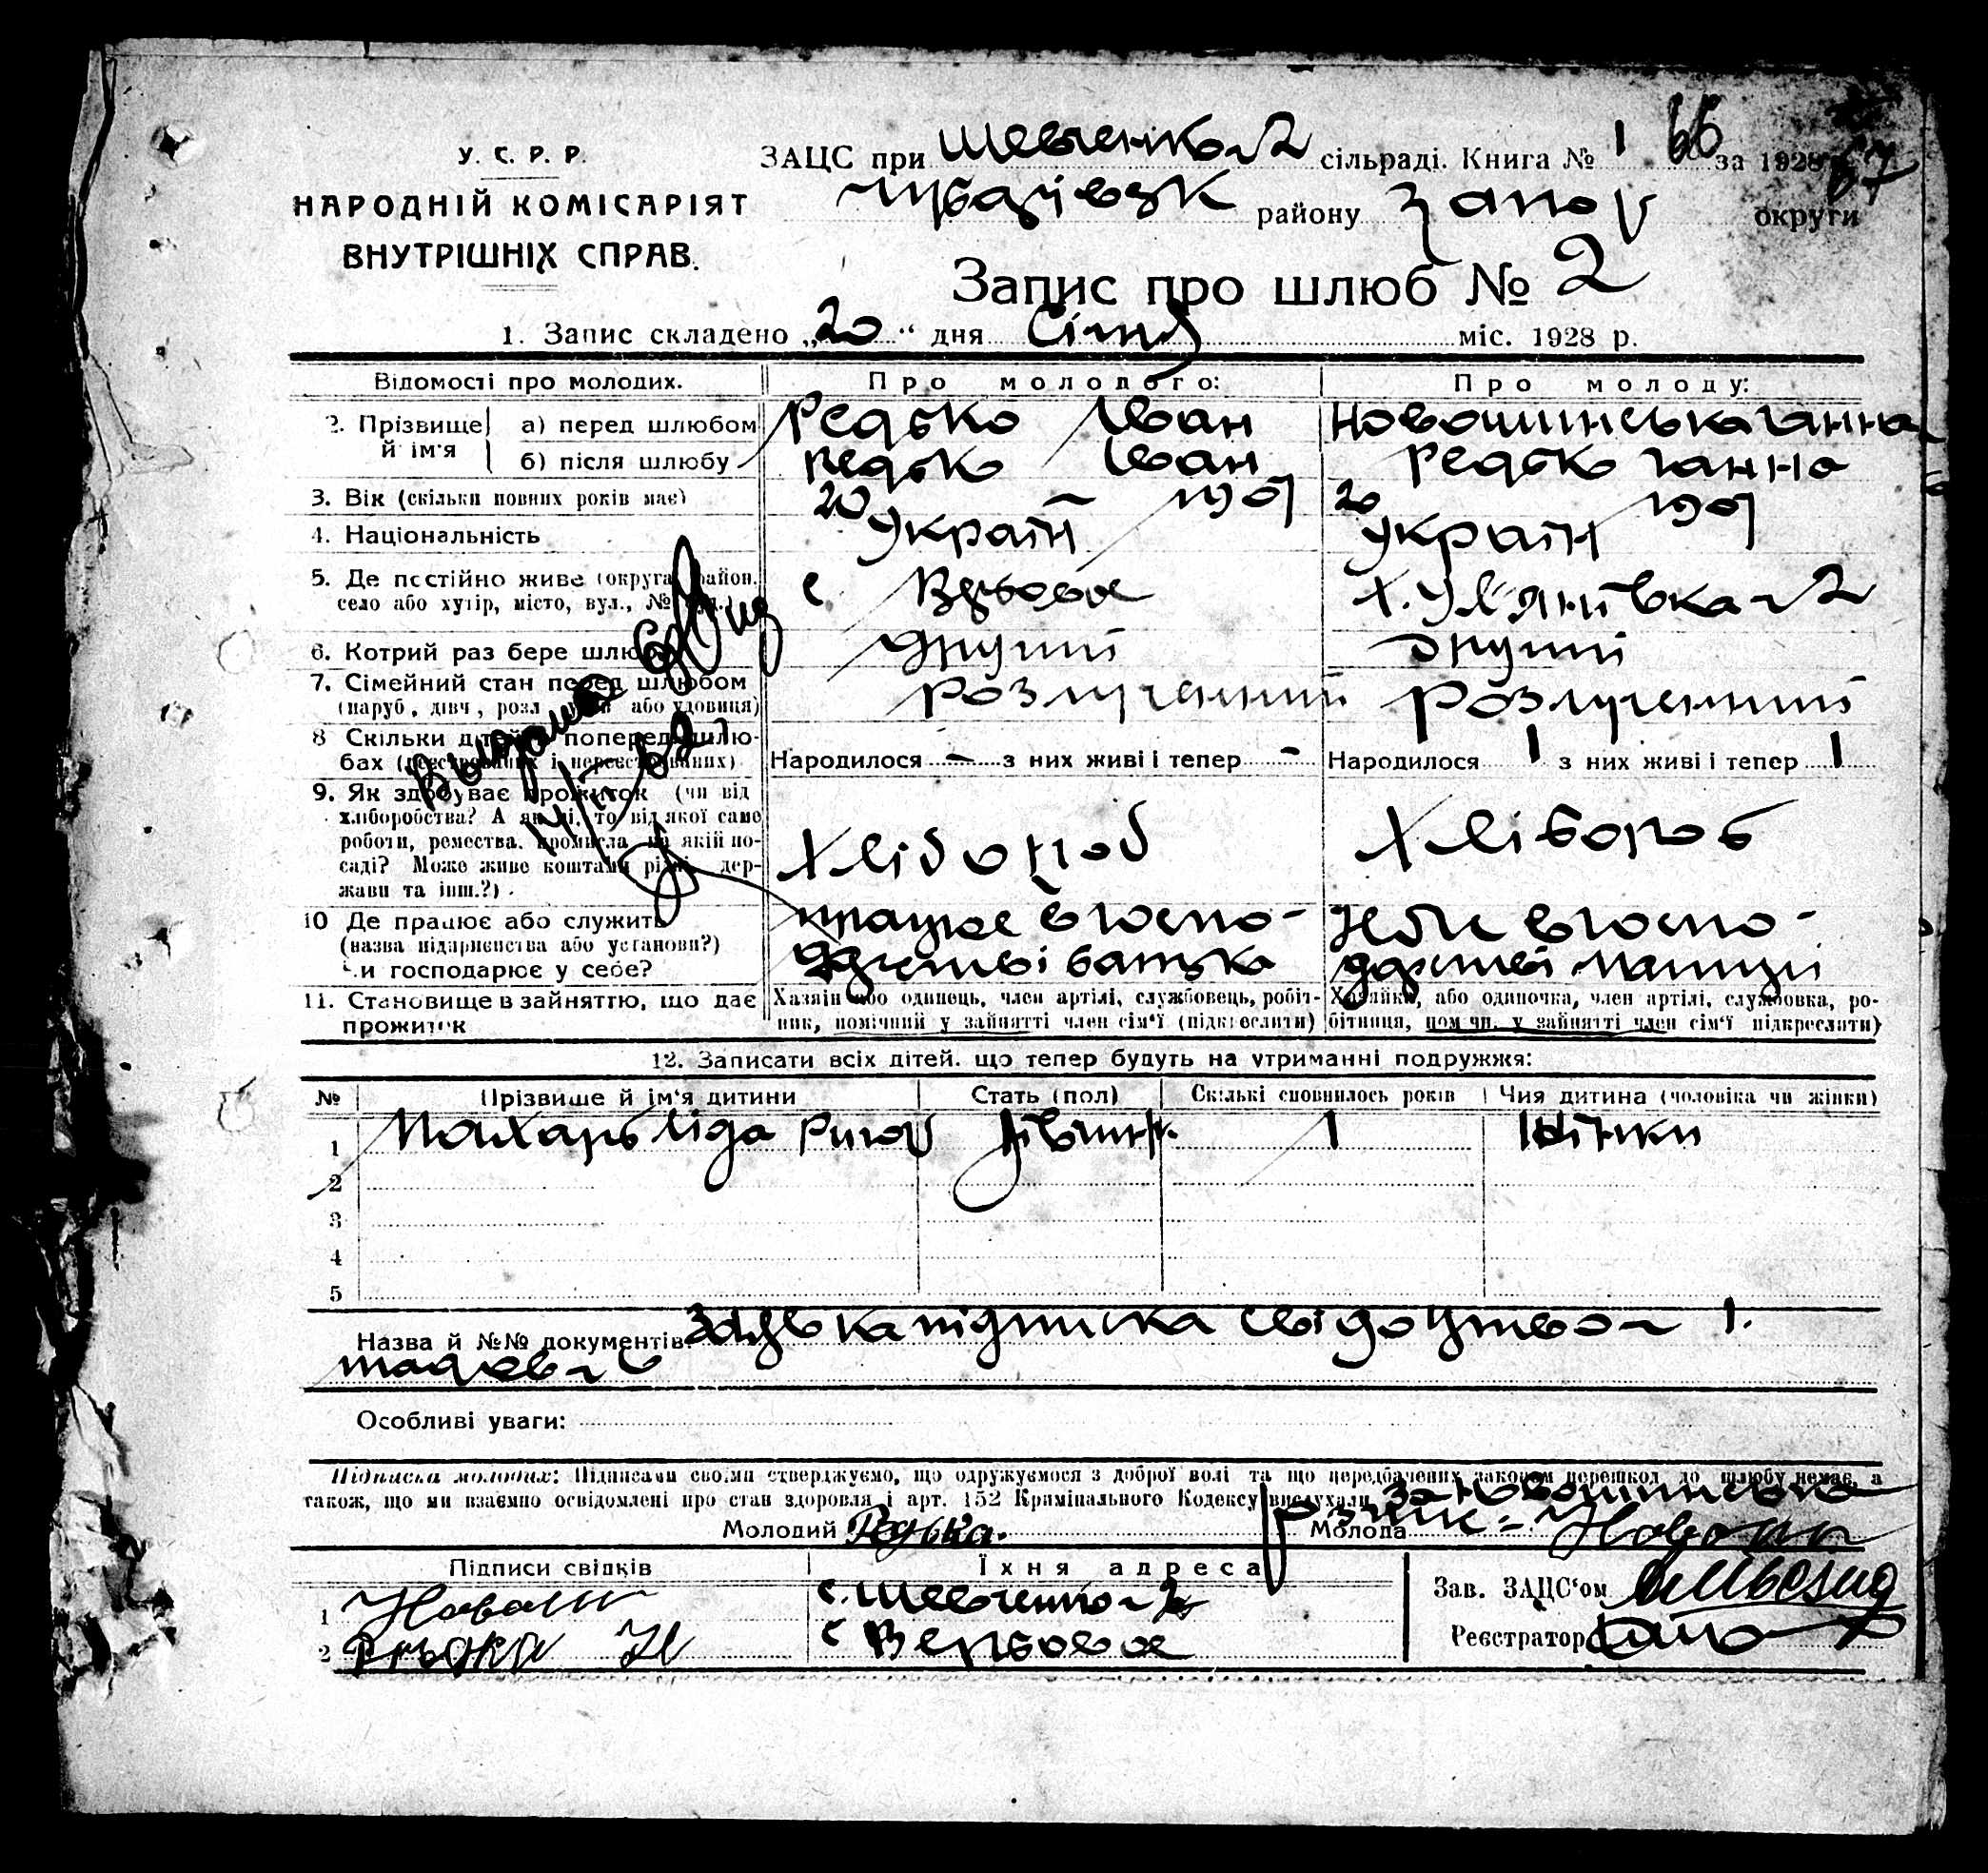 У. С. Р. Р.
НАРОДНІЙ КОМІСАРІЯТ
ВНУТРІШНІХ СПРАВ.
ЗАЦС при Шевченко 2 сільраді. Книга № 1 за 1928
66
67
району Запор округи
Запис про шлюб № 2
1. Запис складено „20“ дня Січня міс. 1928 р.
Відомості про молодих. Про молодого: Про молоду:
2. Прізвище й ім'я а) перед шлюбом Редько Іван Новошинська Ганна
б) після шлюбу Редько Іван Редько Ганна
3. Вік (скільки повних років має) 20 1907 20 1907
4. Національність Україн Україн
5. Де постійно живе (округа, район,
село або хутір, місто, вул., № буд.) с Вербове х. Ул'янівка 2
6. Котрий раз бере шлюб другий другий
7. Сімейний стан перед шлюбом
(паруб., дівч., розл або удовиця) розлученний розлученний
8 Скільки дітей попередн шлю-
бах (реєстрованих і нереєстрованих) Народилося - з них живі і тепер - Народилося 1 з них живі і тепер 1
9. Як здобуває прожиток (чи від
хліборобства? А як ні, то від якої саме
роботи, ремества, промисла на якій по-
саді? Може живе коштами рідні, дер-
жави та інш.?). Хлібороб Хлібороб
10 Де працює або служить
(назва підприємства або установи?)
Чи господарює у себе?
працює в госпо-
дарстві батька
в госпо-
дарстві
11. Становище в зайняттю, що дає
прожиток
Хазяїн або одинець, член артілі, службовець, робіт-
ник, помічний у зайнятті член сім'ї (підкреслити)
Хазяйка, або одиночка, член артілі, службовка, ро-
бітниця, пом чн. у зайнятті член сім'ї підкреслити)
Выдано
12. Записати всіх дітей. що тепер будуть на утриманні подружжя:
№ Прізвище й ім'я дитини Стать (пол) Скількі сповнилось років Чия дитина (чоловіка чи жінки)
1 Ліда 1 жінки
2
3
4
5
Назва й №№ документів: підписка свідоцтво 1.
Особливі уваги:
Підписка молодих: Підписами своїми стверджуємо, що одружуємося з доброї волі та що передбачених законом перешкод до шлюбу немає, а
також, що ми взаємно освідомлені про стан здоровля і арт. 152 Кримінального Кодексу вислухали за Новошинська
Молодий Редька. Молода
Підписи свідків Їхня адреса Зав. ЗАЦС'ом
1 с. Шевченко 2
2 с Вербове Реєстратор